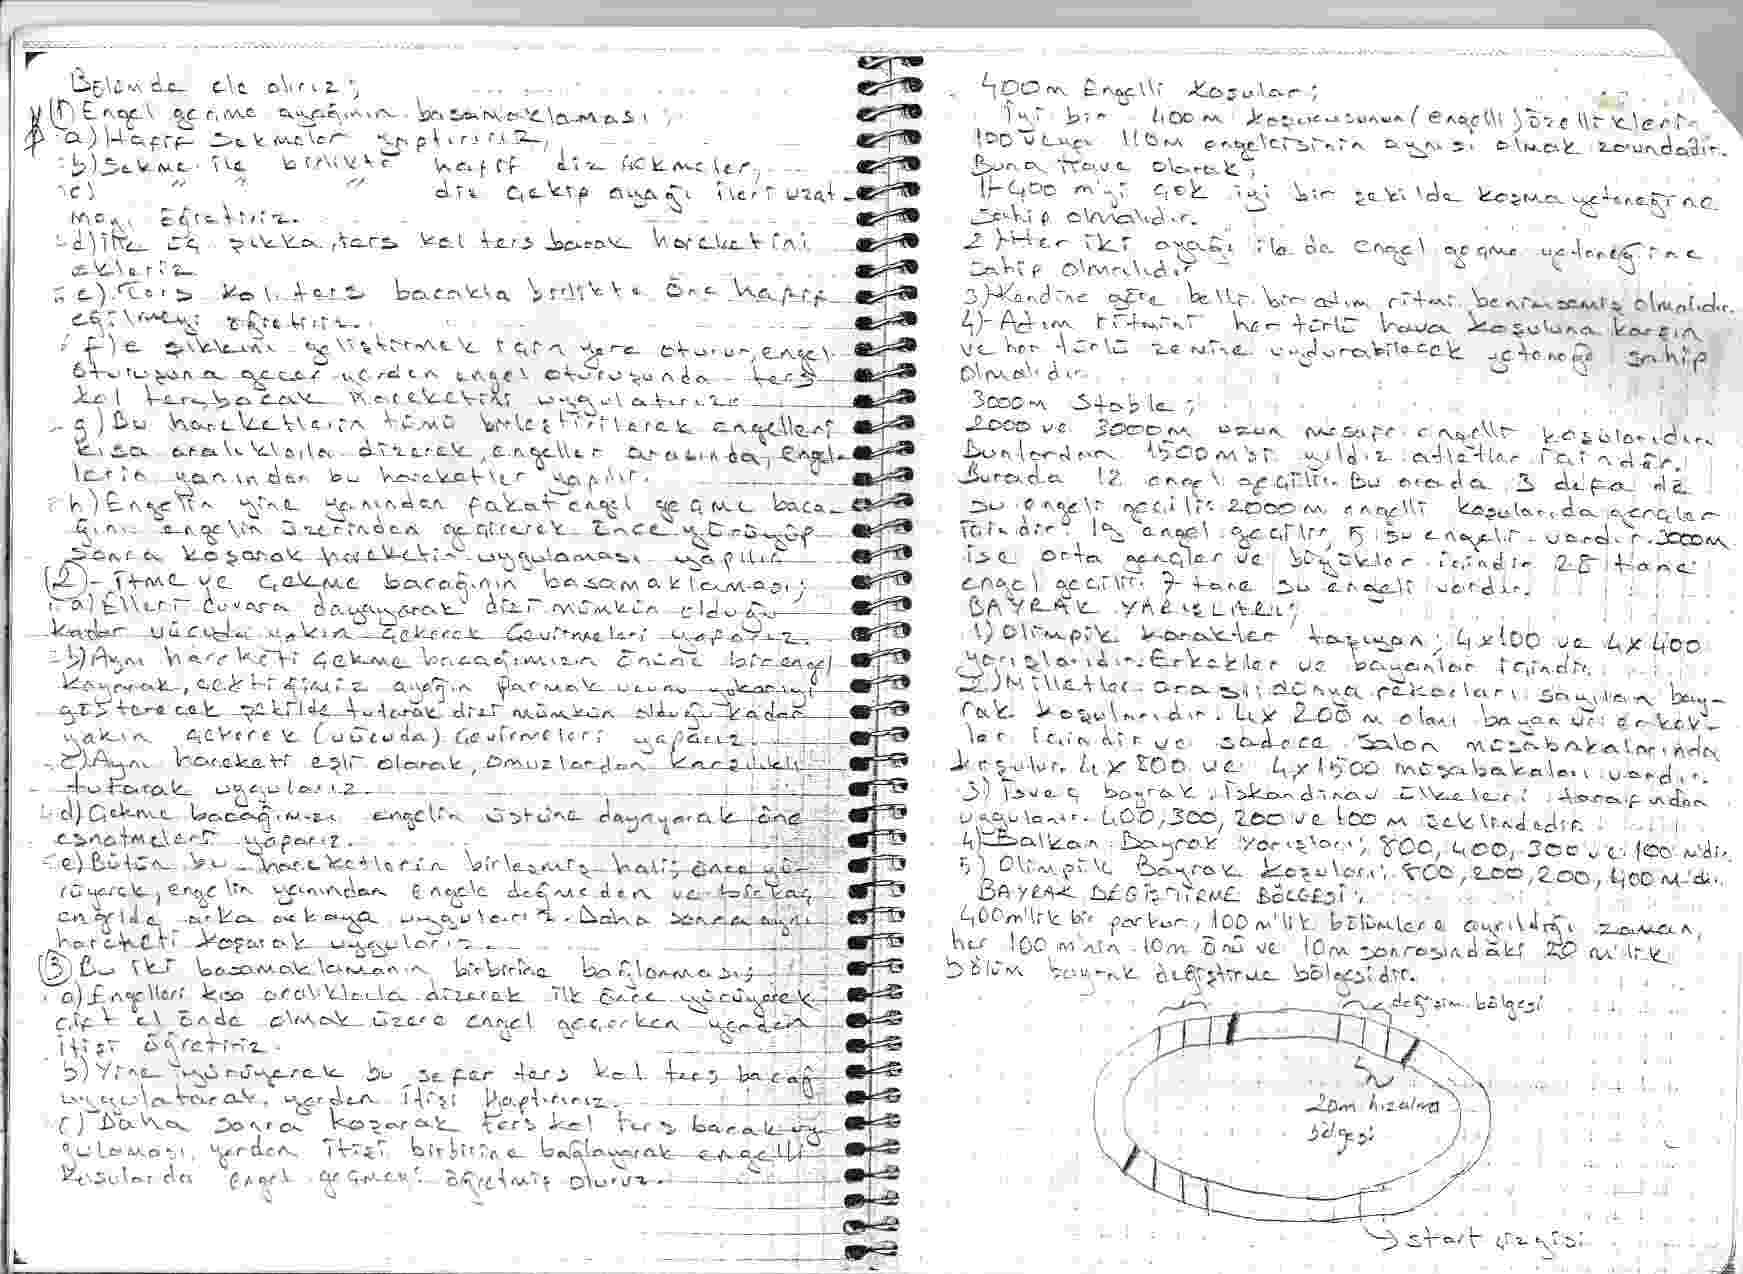 Bölümde ele alırız;
(1) Engel geçme ayağının basamaklaması;
a) Hafif sekmeler yaptırırız,
b) Sekme ile birlikte hafif diz çekmeler,
c) " " " diz çekip ayağı ileri uzat-
mayı öğretiriz.
d) İlk üç şıkka, ters kol ters bacak hareketini
ekleriz.
e) Ters kol ters bacakla birlikte öne hafif
eğilmeyi öğretiriz.
f) e şıkkını geliştirmek için yere oturur, engel
oturuşuna geçer yerden engel oturuşunda ters
kol ters bacak hareketini uygulatırız.
g) Bu hareketlerin tümü birleştirilerek engelleri
kısa aralıklarla dizerek, engeller arasında, engel-
lerin yanından bu hareketler yapılır.
h) Engelin yine yanından fakat engel geçme baca-
ğını engelin üzerinden geçirerek önce yürüyüp
sonra koşarak hareketin uygulaması yapılır
(2) - İtme ve çekme bacağının basamaklaması;
a) Elleri duvara dayayarak dizi mümkün olduğu
kadar vücuda yakın çekerek çevirmeleri yaparız.
b) Aynı hareketi çekme bacağımızın önüne bir engel
koyarak, çektiğimiz ayağın parmak ucunu yukarıyı
gösterecek şekilde tutarak dizi mümkün olduğu kadar
yakın çekerek (vücuda) çevirmeleri yaparız.
c) Aynı hareketi eşli olarak, omuzlardan karşılıklı
tutarak uygularız.
d) Çekme bacağımızı engelin üstüne dayayarak öne
esnetmeleri yaparız.
e) Bütün bu hareketlerin birleşmiş hali; önce yü-
rüyerek, engelin yanından engele değmeden ve birkaç
engelde arka arkaya uygularız. Daha sonra aynı
hareketi koşarak uygularız.
(3) Bu iki basamaklamanın birbirine bağlanması;
a) Engelleri kısa aralıklarla dizerek ilk önce yürüyerek
çift el önde olmak üzere engel geçerken yerden
itişi öğretiriz.
b) Yine yürüyerek bu sefer ters kol ters bacağ
uygulatarak, yerden itişi yaptırırız.
c) Daha sonra koşarak ters kol ters bacak uy
gulaması, yerden itişi birbirine bağlayarak engelli
koşularda engel geçmeyi öğretmiş oluruz.
400m Engelli Koşular;
İyi bir 400m koşucusunun (engelli) özellikleri
100 veya 110m engelcisinin aynısı olmak zorundadır.
Buna ilave olarak;
1- 400 m'yi çok iyi bir şekilde koşma yeteneğine
sahip olmalıdır.
2) Her iki ayağı ile de engel geçme yeteneğine
sahip olmalıdır
3) Kendine göre belli bir adım ritmi benimsemiş olmalıdır.
4)- Adım ritmini her türlü hava koşuluna karşın
ve her türlü zemine uydurabilecek yeteneğe sahip
olmalıdır.
3000m Stable;
2000 ve 3000m uzun mesafe engelli koşularıdır.
Bunlardan 1500m'si yıldız atletler içindir.
Burada 12 engel geçilir. Bu arada 3 defa da
su engeli geçilir. 2000m engelli koşularıda gençler
içindir. 19 engel geçilir, 5 i su engeli vardır. 3000m
ise orta gençler ve büyükler içindir 28 tane
engel geçilir. 7 tane su engeli vardır.
BAYRAK YARIŞLARI;
1) Olimpik karakter taşıyan; 4x100 ve 4x400
yarışlarıdır. Erkekler ve bayanlar içindir.
2) Milletler arası dünya rekorları sayılan bay-
rak koşularıdır. 4x 200m olanı bayan ve erkek-
ler içindir ve sadece salon müsabakalarında
koşulur. 4x800 ve 4x1500 müsabakaları vardır.
3) İsveç bayrak. İskandinav ülkeleri tarafından
uygulanır. 400, 300, 200 ve 100 m şeklindedir.
4) Balkan Bayrak Yarışları; 800, 400, 300 ve 100 m'dir.
5) Olimpik Bayrak Koşuları; 800, 200, 200, 400 m'dir.
BAYRAK DEĞİŞTİRME BÖLGESİ;
400m'lik bir parkur, 100m'lik bölümlere ayrıldığı zaman,
her 100 m'nin 10m önü ve 10m sonrasındaki 20 m'lik
bölüm bayrak değiştirme bölgesidir.
değişim bölgesi
20m hızalma
bölgesi
start çizgisi